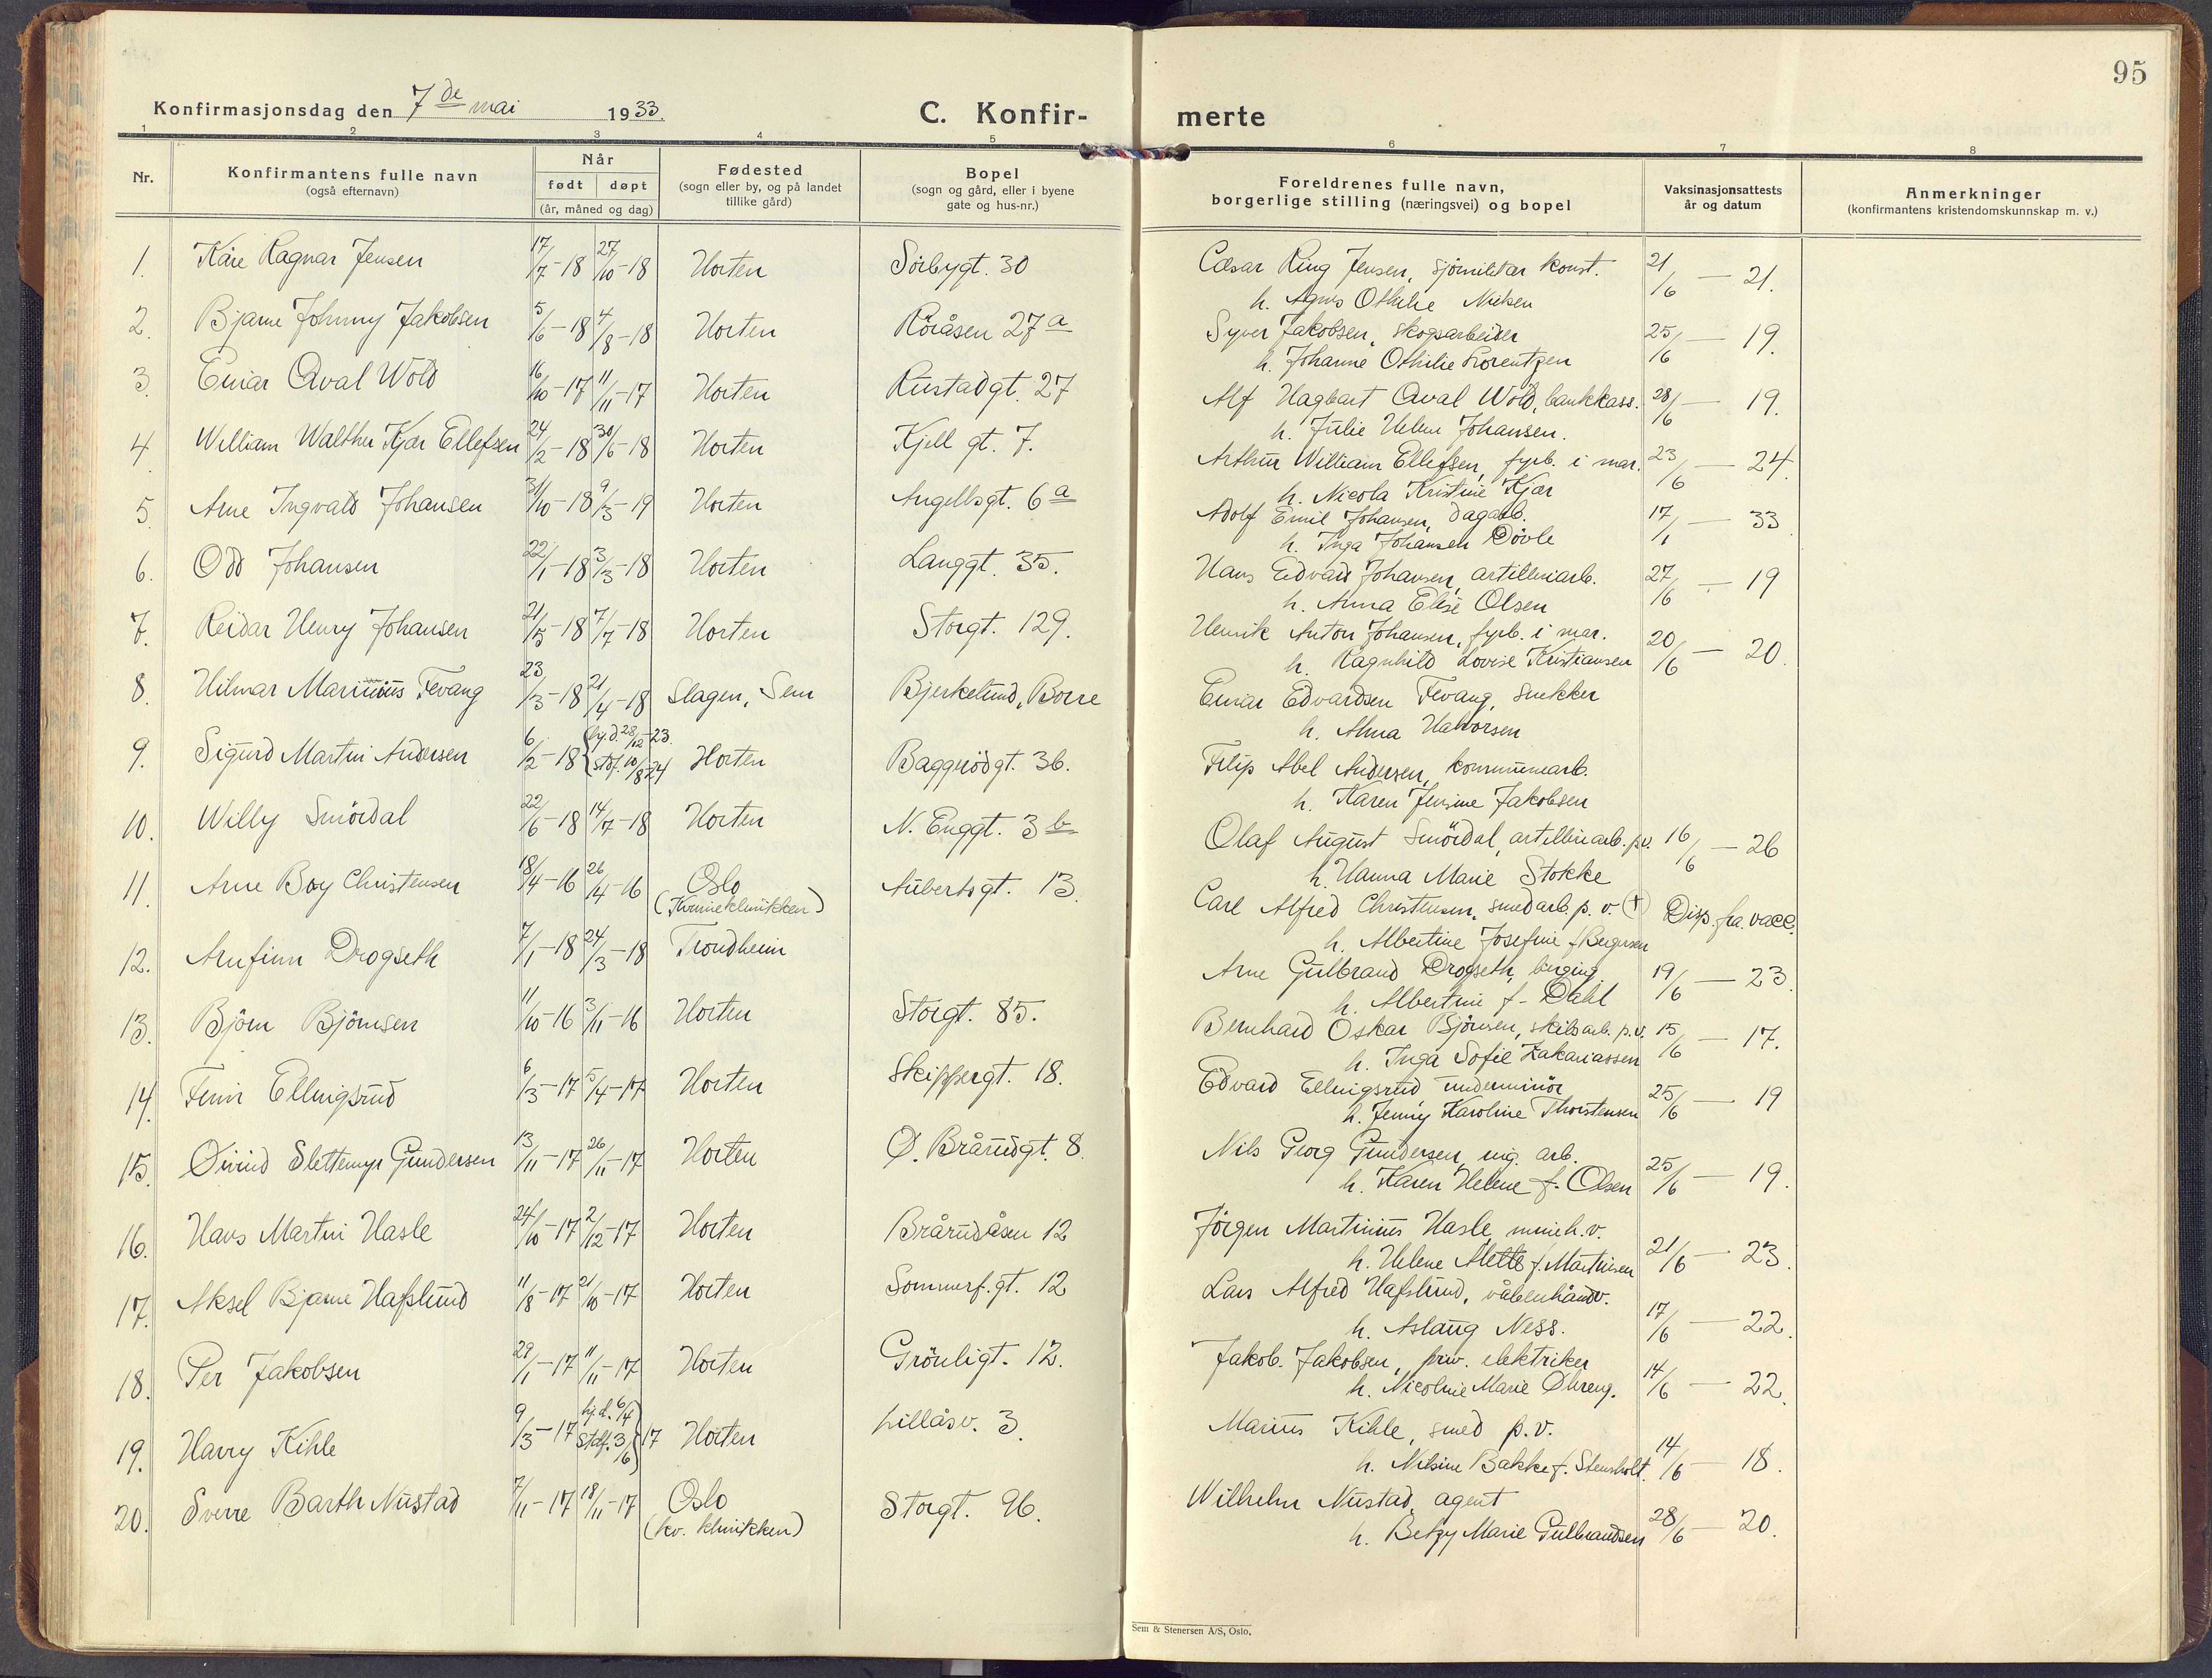 95
Konfirmasjonsdag den 7de mai 1933.
C. Konfir- merte
1 2 3 4 5 6 7 8
Nr.
Konfirmantens fulle navn
(også efternavn)
Når
født døpt
(år, måned og dag)
Fødested
(sogn eller by, og på landet
tillike gård)
Bopel
(sogn og gård, eller i byene
gate og hus-nr.)
Foreldrenes fulle navn,
borgerlige stilling (næringsvei) og bopel
Vaksinasjonsattests
år og datum
Anmerkninger
(konfirmantens kristendomskunnskap m. v.)
1. Kåre Ragnar Jensen 17/7-18 27/10-18 Horten Sörbygt. 30 Cæsar Ring Jensen, sjömilitær konst. 21/6 — 21.
h. Agnes Othilie Nielsen
2. Bjarne Johnny Jakobsen 5/6-18 4/8-18 Horten Röråsen 27 a Syver Jakobsen, skogsarbeider 25/6 — 19.
h. Johanne Othilie Lorentzen
3. Einar Aval Wold 16/10-17 11/11-17 Horten Rustadgt. 27 Alf Hagbart Aval Wold, bankkass. 28/6 — 19.
h. Julie Helene Johansen.
4. William Walther Kjær Ellefsen 24/2-18 30/6-18 Horten Kjell gt. 7. Arthur William Ellefsen, fyrb. i mar. 23/6 — 24.
h. Nicola Kristine Kjær
5. Arne Ingvald Johansen 31/10-18 9/3-19 Horten Angellsgt. 6 a Adolf Emil Johansen, dagarb. 17/1 — 33
h. Inga Johansen Døvle
6. Odd Johansen 22/1-18 3/3-18 Horten Langgt. 35. Hans Edvard Johansen, artilleriarb. 27/6 — 19
h. Anna Elise Olsen
7. Reidar Henry Johansen 21/5-18 7/7-18 Horten Storgt. 129. Henrik Anton Johansen, fyrb. i mar. 20/6 — 20.
h. Ragnhild Lovise Kristiansen
8. Hilmar Marinius Fevang 23/3-18 21/4-18 Slagen, Sem Bjerkelund, Borre Einar Edvardsen Fevang, snekker
h. Alma Halvorsen
9. Sigurd Martin Andersen 6/2-18 hj.d. 28/12-23. stdf. 10/8-24 Horten Baggerödgt. 36. Filip Abel Andersen, kommunearb.
h. Karen Jensine Jakobsen
10. Willy Smördal 22/6-18 14/7-18 Horten N. Enggt. 3 b Olaf August Smördal, artilleriarb. p.v. 16/6 — 26
h. Hanna Marie Stokke
11. Arne Boy Christensen 18/4-16 26/4-16 Oslo Aubertsgt. 13. Carl Alfred Christensen, smedarb. p. v. (+) Disp. fra vacc.
(Kvinneklinikken) h. Albertine Josefine f. Bergersen
12. Arnfinn Drogseth 7/1-18 24/3-18 Trondheim Arne Gulbrand Drogseth, 19/6 — 23
h. Albertine f. Dahl
13. Björn Björnsen 11/10-16 3/11-16 Horten Storgt. 85. Bernhard Oskar Björnsen, skibsarb. p.v. 15/6 — 17.
h. Inga Sofie Zakariassen
14. Finn Ellingsrud 6/3-17 5/4-17 Horten Skippergt. 18. Edvard Ellingsrud underminör 25/6 — 19
h. Jenny Karoline Thorstensen
15. Øivind Slettemyr Gundersen 13/11-17 26/11-17 Horten Ø. Brårudgt. 8. Nils Georg Gundersen, ing. arb. 25/6 — 19.
h. Karen Helene f. Olsen
16. Hans Martin Hasle 24/10-17 2/12-17 Horten Brårudåsen 12 Jörgen Martinius Hasle, mineh.v. 21/6 — 23.
h. Helene Mette f. Martinsen
17. Aksel Bjarne Hafslund 11/8-17 21/10-17 Horten Sommerf.gt. 12 Lars Alfred Hafslund, våbenhåndv. 17/6 — 22.
h. Aslaug Ness.
18. Per Jakobsen 29/1-17 11/11-17 Horten Grönligt. 12. Jakob Jakobsen, priv. elektriker 14/6 — 22.
h. Nicoline Marie Øhreng.
19. Harry Kihle 9/3-17 hj.d. 6/4 Stdf. 3/6 17 Horten Lillåsv. 3. Marius Kihle, smed p.v. 14/6 — 18.
h. Nilsine Bakke f. Stensholt.
20. Sverre Barth Nustad 7/11-17 18/11-17 Oslo Storgt. 96. Wilhelm Nustad, agent 28/6 — 20.
(kv. klinikken) h. Betzy Marie Gulbrandsen
Sem & Stenersen A/S, Oslo.